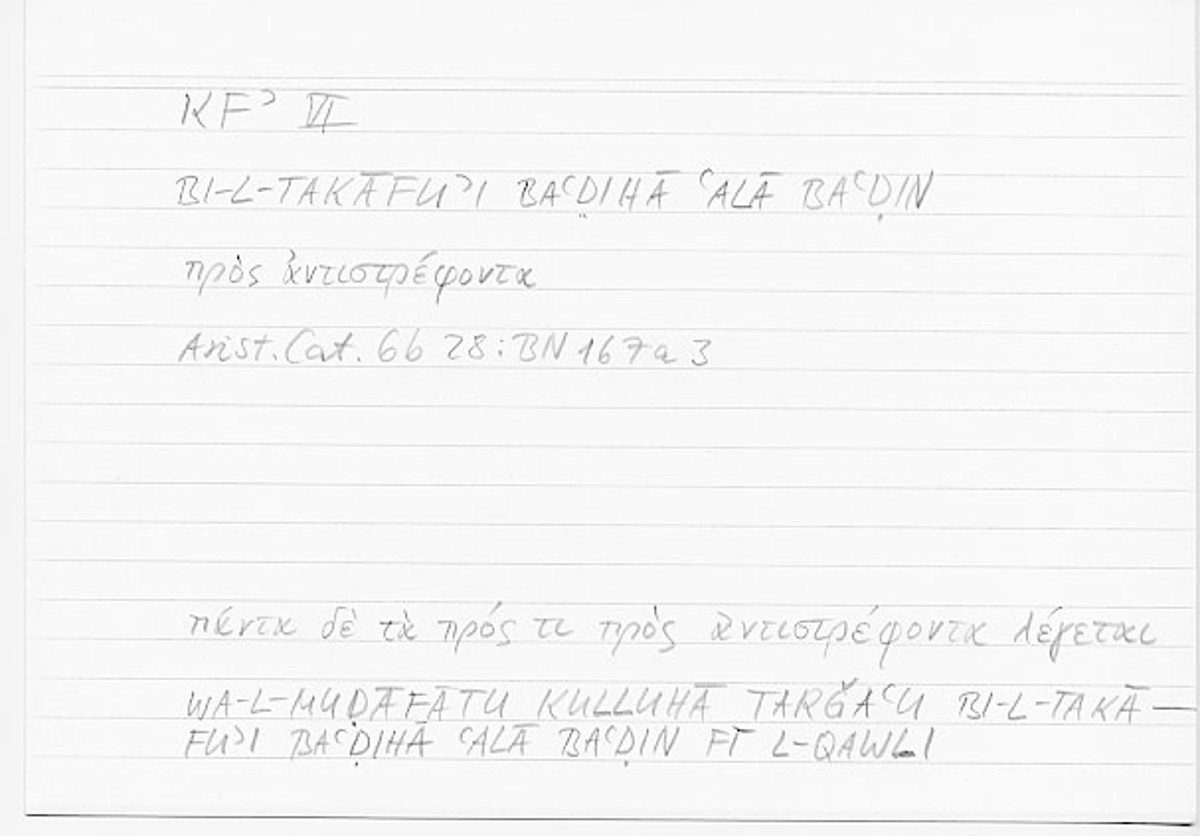 KFʾ VI
BI-L-TAKĀFUʾI BAʿḌIHĀ ʿALĀ BAʿḌIN
πρὸς ἀντιστρέφοντα
Arist. Cat. 6b 28 : BN 167a 3
πάντα δὲ τὰ πρός τι πρὸς ἀντιστρέφοντα λέγεται
WA-L-MUḌĀFĀTU KULLUHĀ TARǦAʿU BI-L-TAKĀ—
FUʾI BAʿḌIHĀ ʿALĀ BAʿḌIN FĪ L-QAWLI